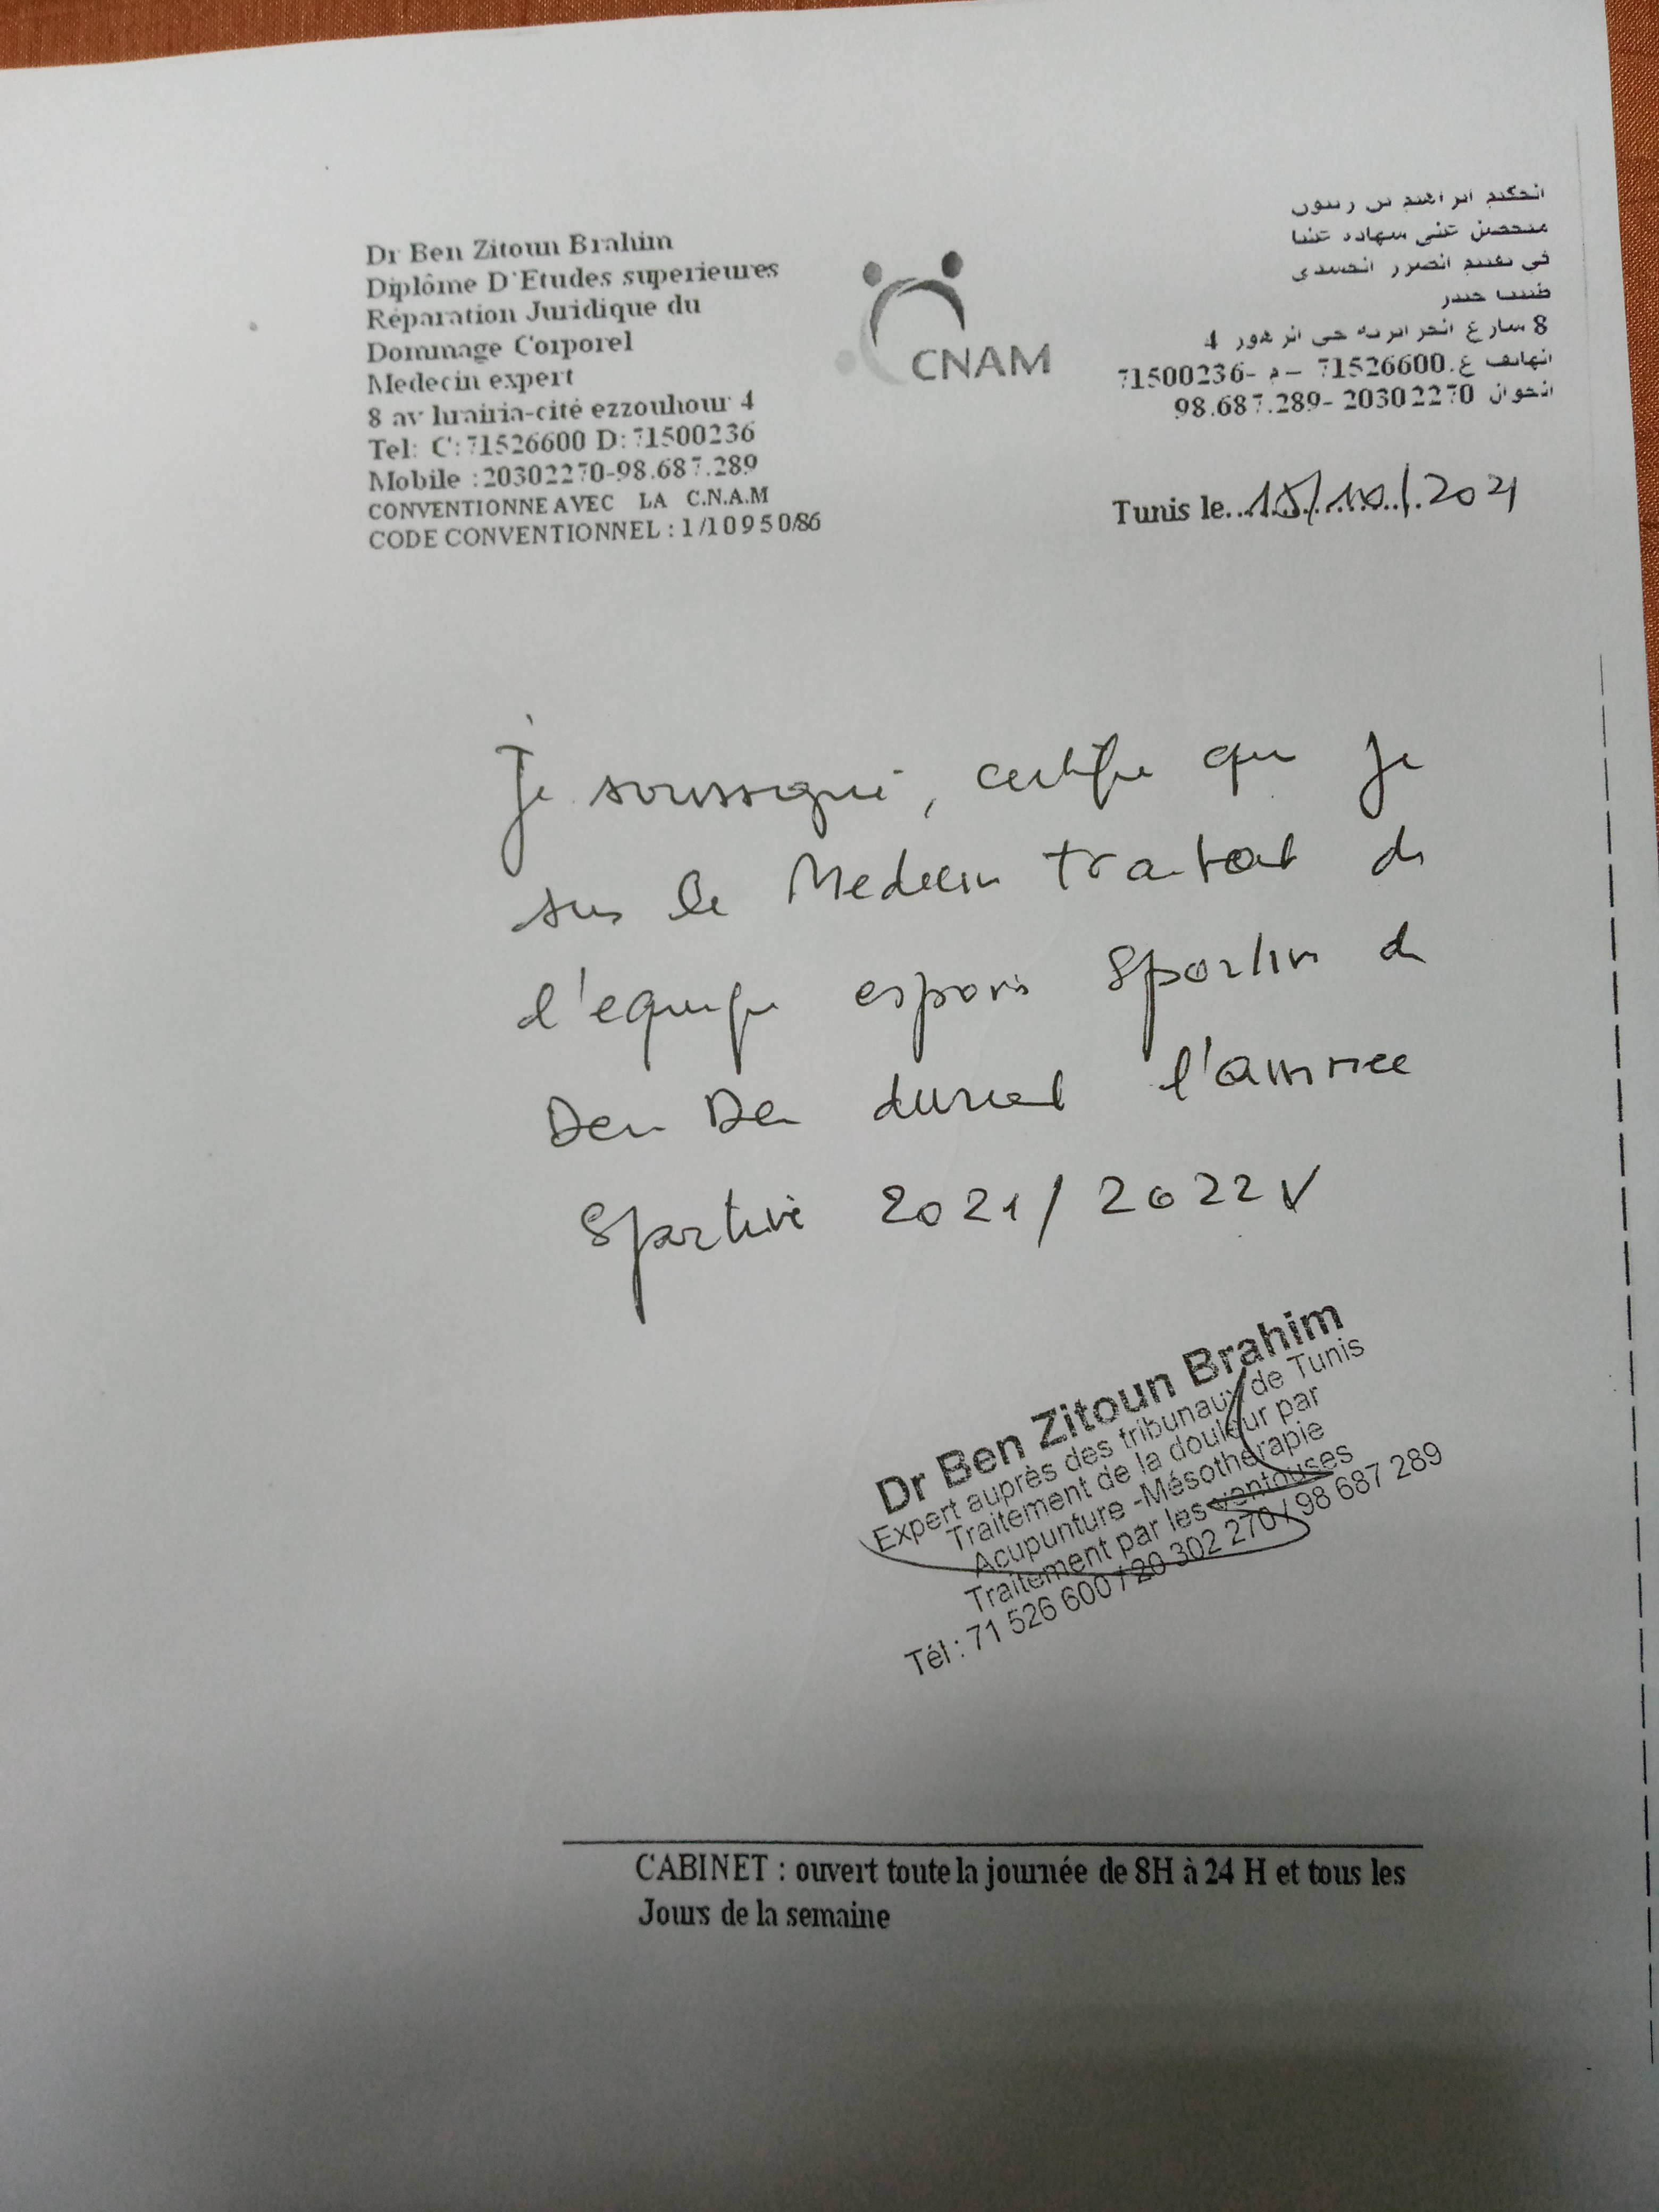 Dr Ben Zitoun Brahim
Diplôme D'Etudes superieures
Réparation Juridique du
Dommage Corporel
Medecin expert
8 av huairia-cité ezzouhour 4
Tel: C:71526600 D:71500236
Mobile :20302270-98.687.289
CONVENTIONNE AVEC LA C.N.A.M
CODE CONVENTIONNEL : 1/10950/86
CNAM
الحكيم ابراهيم بن زيتون
متحصل على شهادة عليا
في تقييم الضرر الجسدي
طبيب خبير
8 شارع الحرايرية حي الزهور 4
الهاتف ع.71526600 – م -71500236
الجوال 20302270 -98.687.289
Tunis le..15/10/.2021
Je soussigné, certifie que je
suis le Medecin traitant de
l'equipe espoir Sportive de
Den Den durant l'annee
Sportive 2021/2022
Dr Ben Zitoun Brahim
Expert auprès des tribunaux de Tunis
Traitement de la douleur par
Acupunture -Mésothérapie
Traitement par les ventouses
Tél : 71 526 600 / 20 302 270 / 98 687 289
CABINET : ouvert toute la journée de 8H à 24 H et tous les
Jours de la semaine